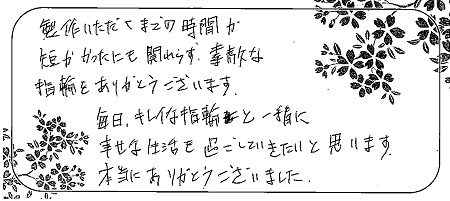 製作いただくまでの時間が
短かかったにも関わらず、素敵な
指輪をありがとうございます。
毎日、キレイな指輪と一緒に
幸せな生活を過ごしていきたいと思います。
本当にありがとうございました。